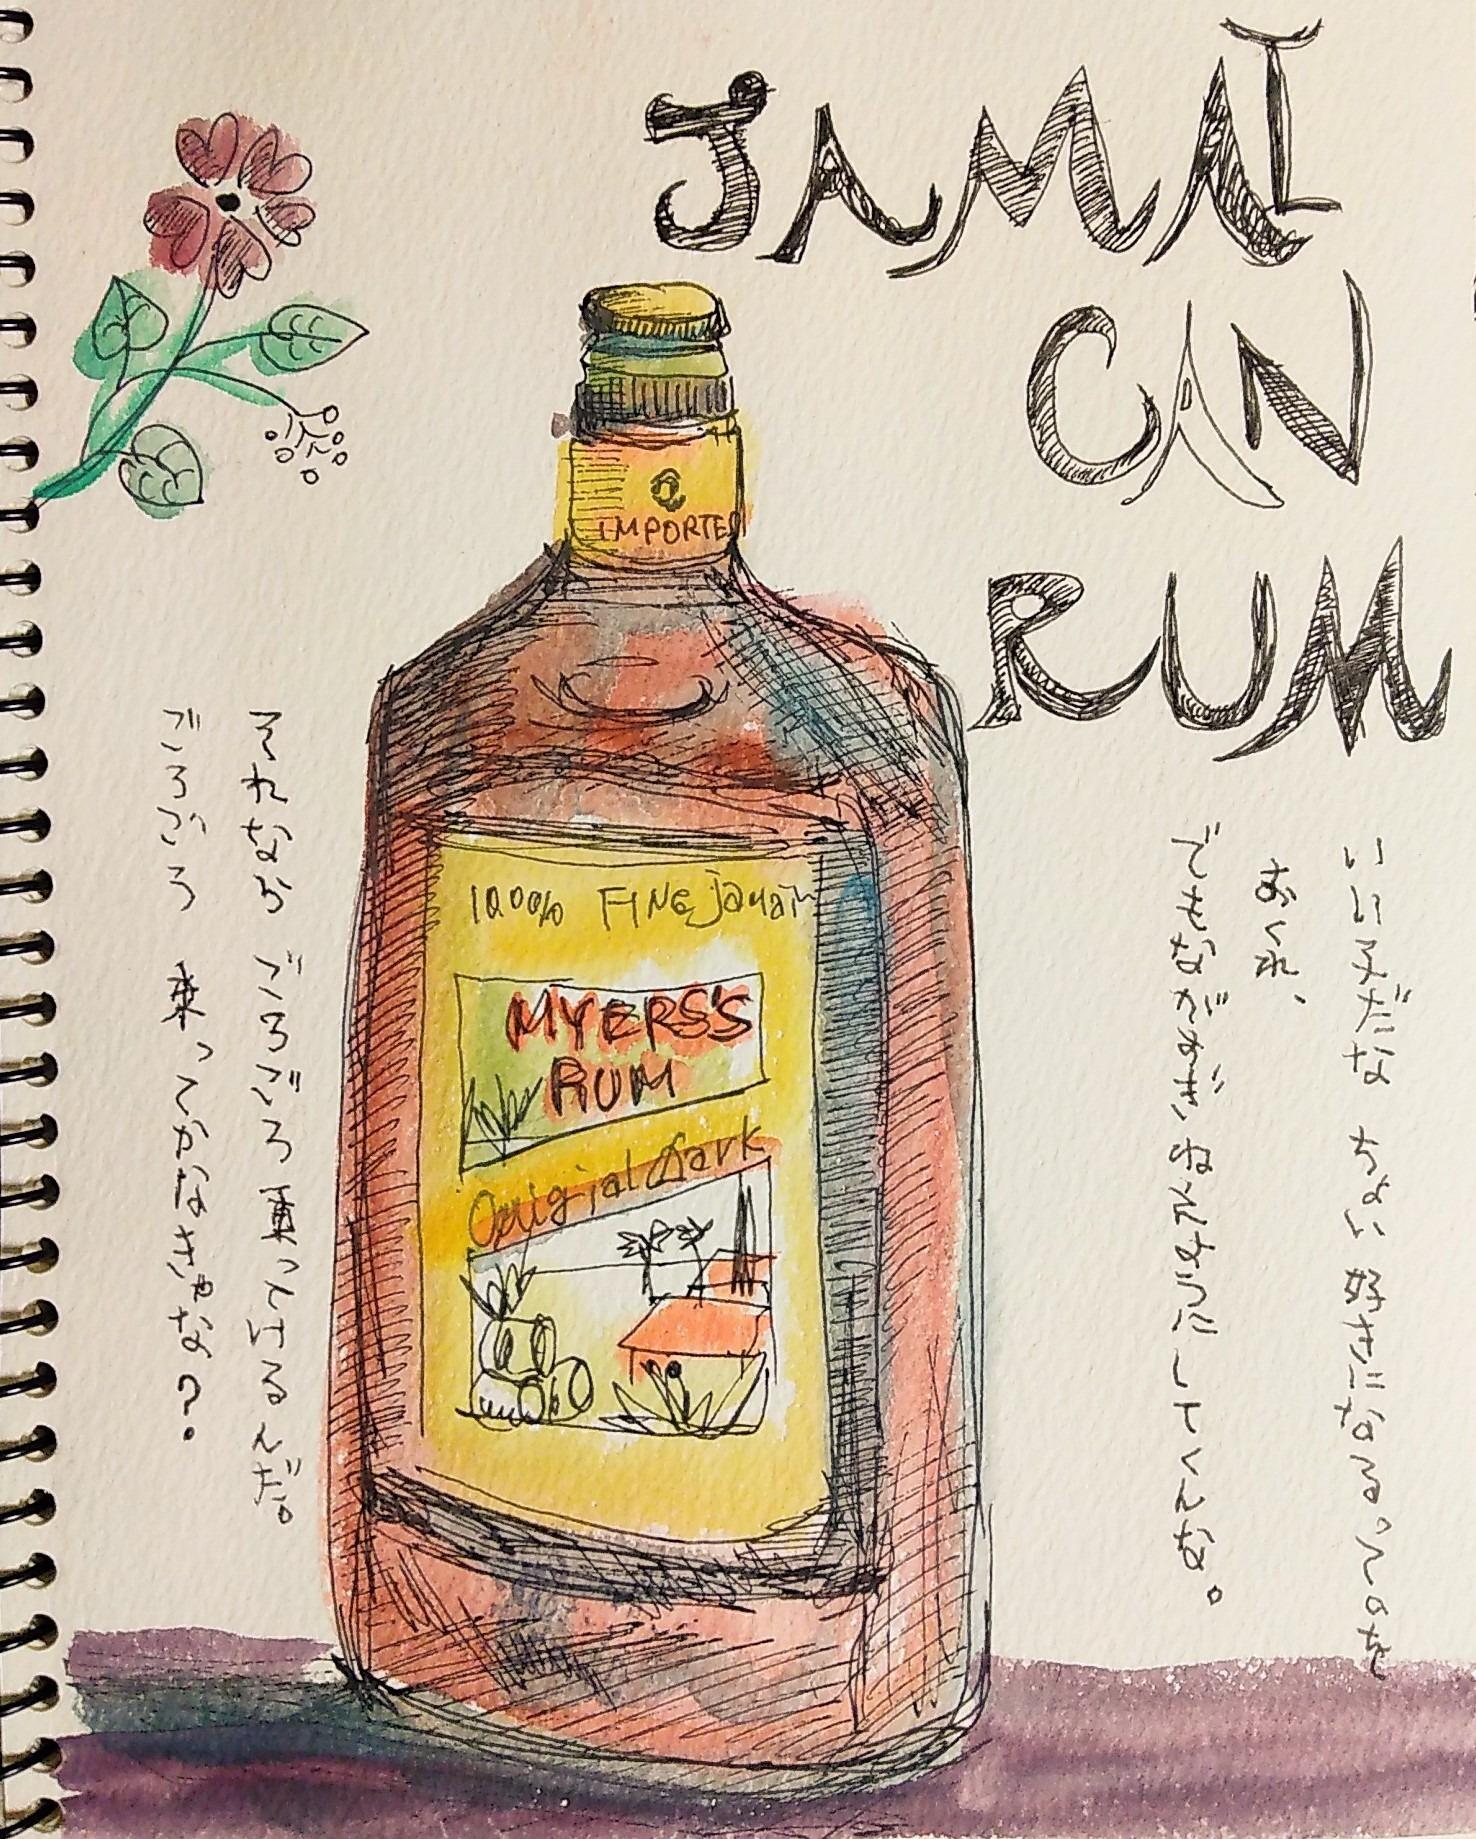 JAMAI
CAN
RUM
IMPORTED
100% FINE Jamain
MYERS'S
RUM
Original dark
いい子だな ちょい 好きになるってのを
おくれ、
でもながすぎねえようにしてくんな。
それなら ごろごろ 乗ってけるんだ。
ごろごろ 乗ってかなきゃな?